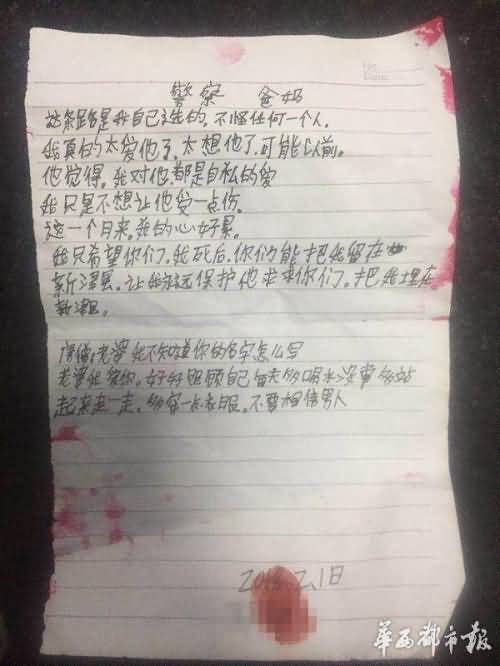 警察 爸妈
这条路是我自己走的，不怪任何一个人，
我真的太爱他了，太想他了，可能以前。
他觉得。我对他，都是自私的爱
我只是不想让他受一点伤，
这一个月来，我的心好累。
我只希望你们，我死后，你们能把我留在
新津县，让我永远保护他求求你们。把我埋在
新津。
老婆我不知道你的名字怎么写
老婆我爱你。好好照顾自己每天多喝水没事多站
起来走一走，多穿一点衣服。不要相信男人
2.1日
华西都市报